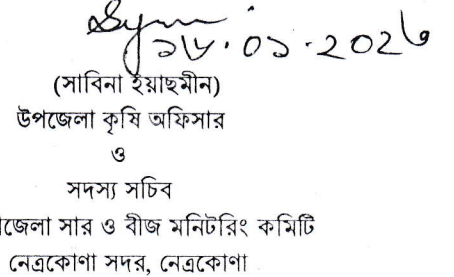 ১৮.০১.২০২৬
(সাবিনা ইয়াছমীন)
উপজেলা কৃষি অফিসার
ও
সদস্য সচিব
জেলা সার ও বীজ মনিটরিং কমিটি
নেত্রকোণা সদর, নেত্রকোণা